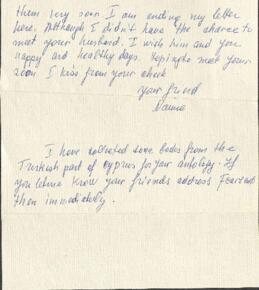 them very soon I am ending my letter
here. Although I didn't have the chance to
meet your husband. I wish him and you
happy and healthy days. Hoping to meet you
soon I kiss from your cheek
your friend
I have collected some books from the
Turkish part of cyprus for your antology. If
you know your friends address I'ear
them immediately.